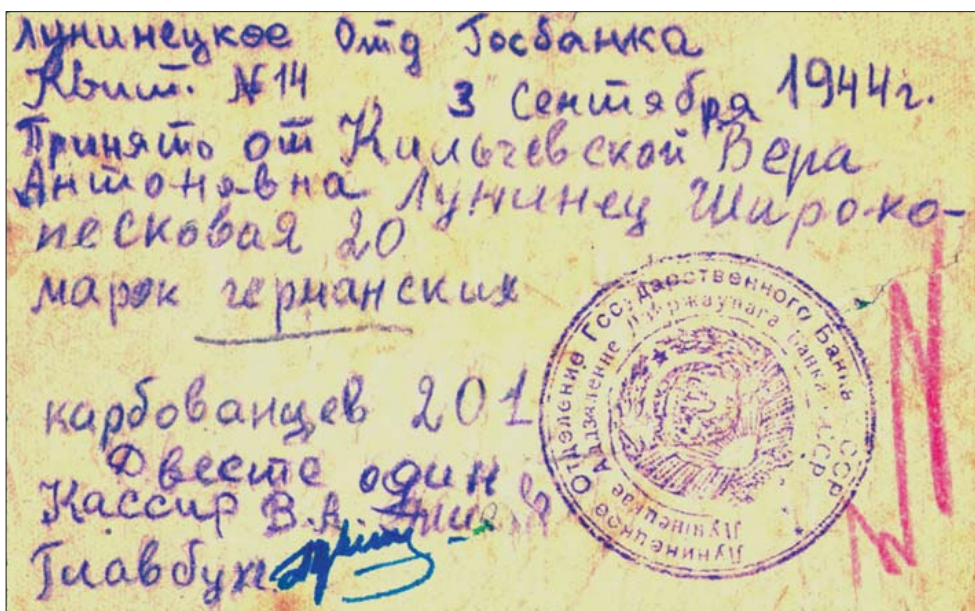 Лунинецкое Отд Госбанка
Квит. №14 3 Сентября 1944г.
Принято от Кильчевской Вера
Антоновна Лунинец Широко-
песковая 20
марок германских
карбованцев 201
Двесте один
Кассир В.А.
Главбух
Лунинецкое Отделение Государственного Банка СССР
Лунінецкае Аддзяленне Дзяржаунага Банка СССР